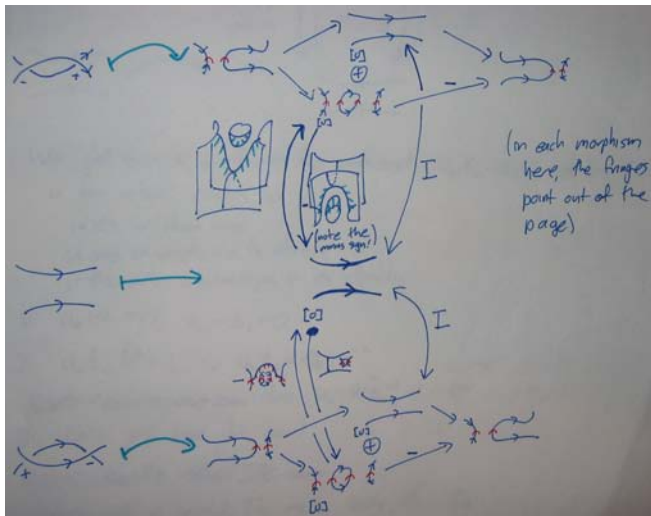 - +
[S]
⊕
-
[S]
I
(in each morphism
here, the fringes
point out of the
page)
-
(note the
minus sign!)
[0]
I
-
[0]
⊕
+ -
-
[0]